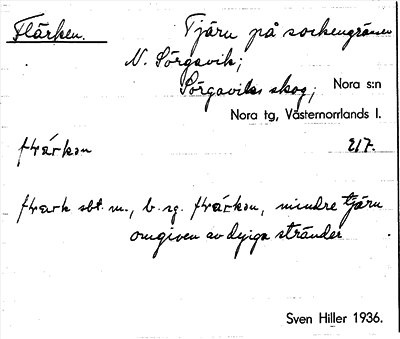 Flärken. Tjärn på sockengränsen
N. Sörgavik;
Sörgaviks skog; Nora s:n
Nora tg, Västernorrlands l.
217.
sbt. m., b. sg. mindre tjärn
omgiven av dyiga stränder
Sven Hiller 1936.